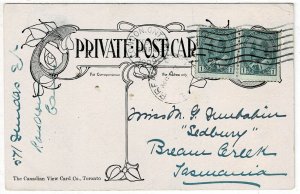 PRIVATE POST CARD
For Correspondence
For Address only
571 Dundas St
London
Can
Miss M. G. Dunbabin
"Sedbury"
Bream Creek
Tasmania
The Canadian View Card Co., Toronto